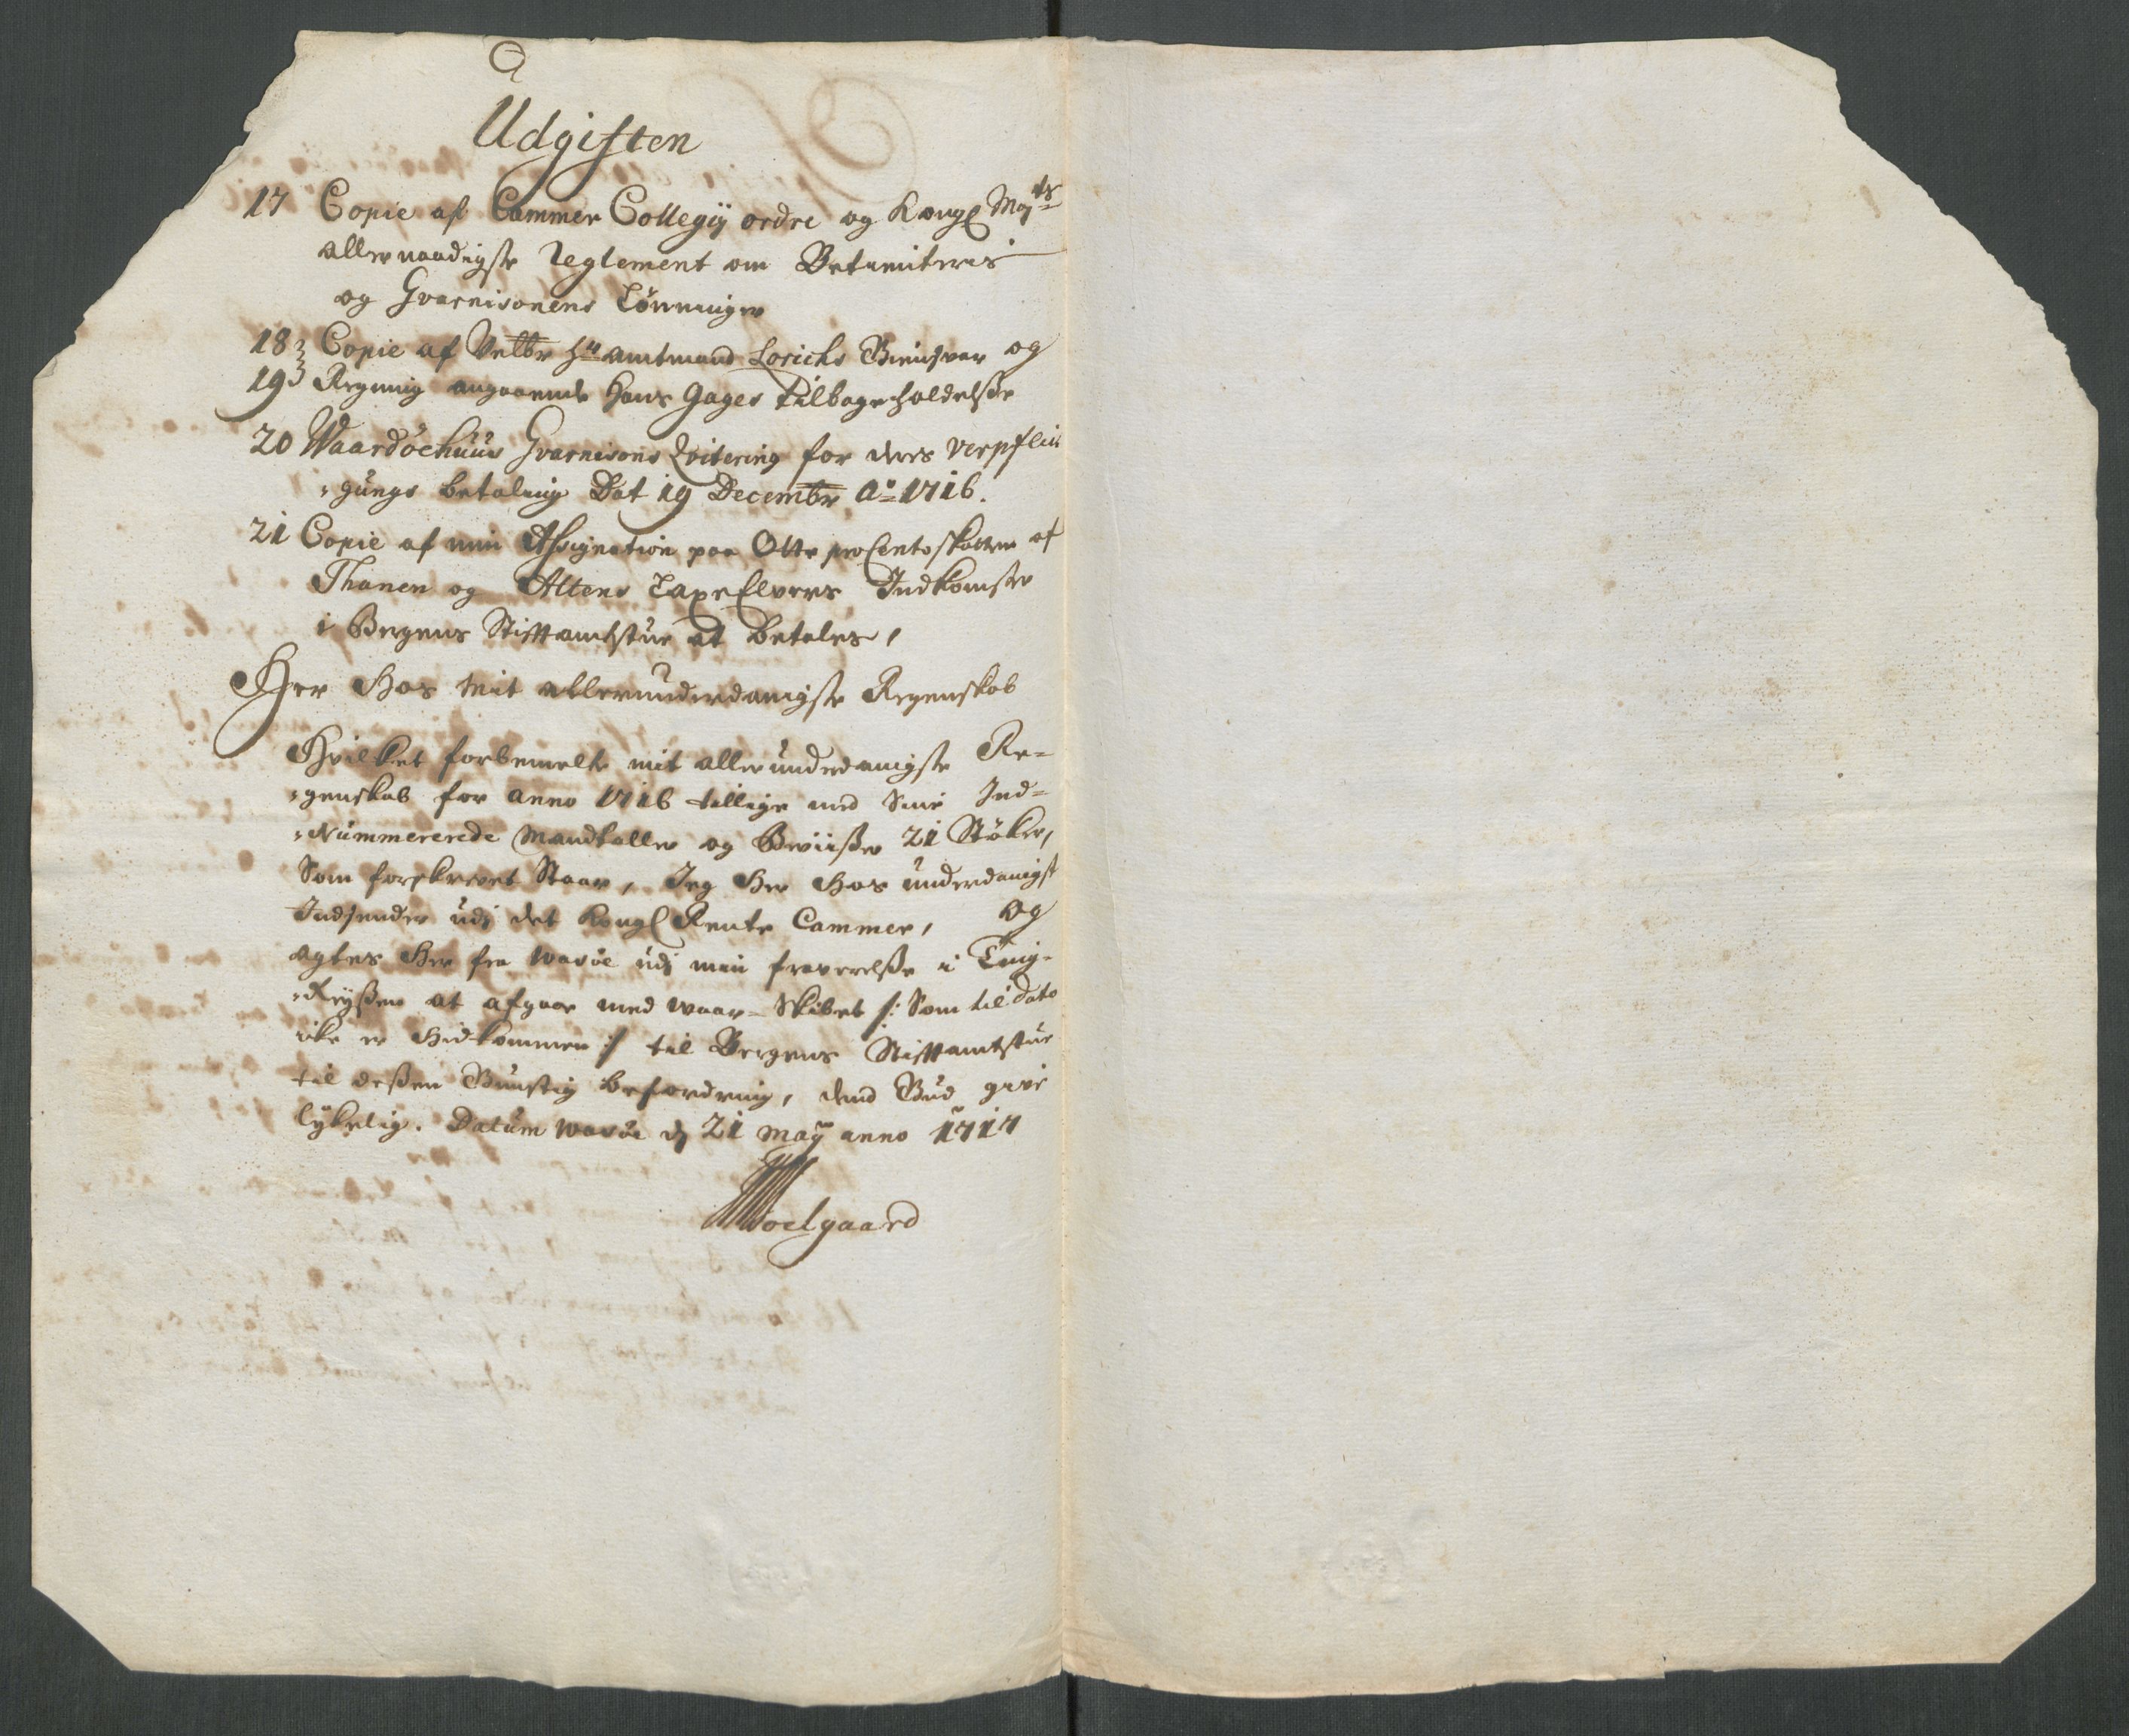 Udgiften
17 Copie af Cammer Collegij ordre og Kongl May^ts
allernaadigste Reglement om Betienternis
og Gvarnisonens Lönninger
18 Copie af Velbr H^r amtmand Lorichs Giensvar og
19 Regning angaaende Hans Gages tilbageholdelsße
20 Waardöehuus Gvarnisons Qvitering for ders verpflei
-gungs betaling Dat 19 Decembr A^o 1716.
21 Copie af min Assignation paa Otte proCento skatten af
Thanen og Altens LaxeElvers Indkomster
i Bergens Stifftamtstue at betales,
Her Hos Mit allerunderdanigste Regenskab
Hvilket forbemelte mit allerunderdanigste Re=
-genskab for anno 1716 tillige med Sine Ind=
-Nummererede Mandtaller og Beviißer 21 Støker,
Som forskrevet Staar, Jeg Her Hos underdanigst
Indsender udj det Kongl Rente Cammer, og
agtes Her fra Wasöe udj min fraverelße i Ting-
-Reyßen at afgaae med Waar-Skibet /: Som til dato
ike er Hidkommen :/ til Bergens Stifftamtstue
til deßen Gunstig befordring, dend Gud give
lykelig. Datum Wasöe dj 21 Maÿ anno 1717
Woelgaard